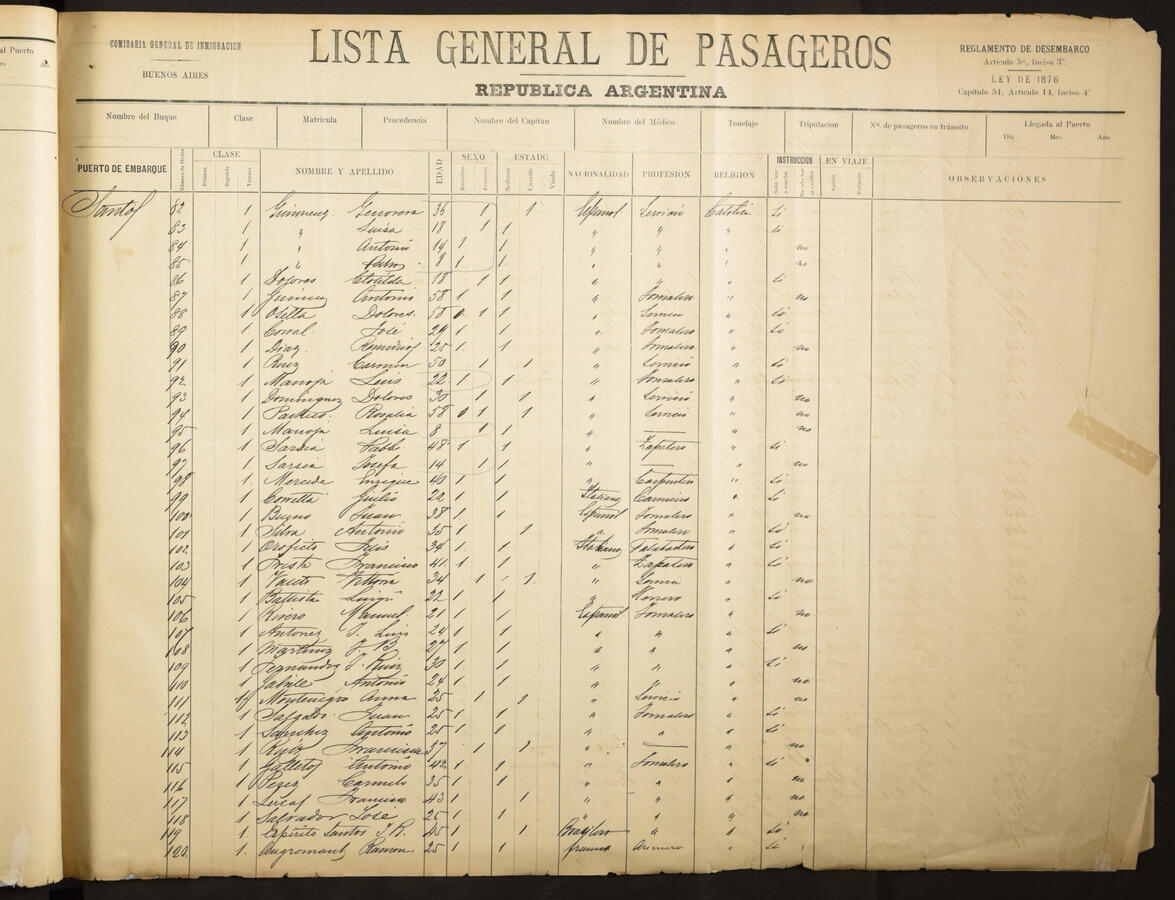 al Puerto
COMISARIA GENERAL DE INMIGRACION
BUENOS AIRES
LISTA GENERAL DE PASAGEROS
REPUBLICA ARGENTINA
REGLAMENTO DE DESEMBARCO
Artículo 5º, Inciso 3º.
LEY DE 1876
Capítulo 51, Artículo 14, Inciso 4º
Nombre del Buque Clase Matrícula Procedencia Nombre del Capitan Nombre del Médico Tonelaje Tripulacion Nº. de pasageros en tránsito Llegada al Puerto
Día Mes Año
PUERTO DE EMBARQUE Número de Orden CLASE Primera Segunda Tercera NOMBRE Y APELLIDO EDAD SEXO Masculino Femenino ESTADO Soltero Casado Viudo NACIONALIDAD PROFESION RELIGION INSTRUCCION Sabe leer y escribir No sabe leer ni escribir EN VIAJE Nacido Fallecido OBSERVACIONES
Santos 82 1 Genovera 36 1 1 Español Servicio Católica Si
83 1 " Luisa 18 1 1 " " " Si
84 1 " Antonio 14 1 1 " " " no
85 1 " 8 1 1 " " " no
86 1 Dolores Clotilda 18 1 1 " " " Si
87 1 Antonio 58 1 1 " Jornalero " no
88 1 Dolores 58 0 1 1 " " Si
89 1 Corral José 29 1 1 " Jornalero " Si
90 1 Diaz 25 1 1 " Jornalero " no
91 1 Ruiz Carmen 50 1 1 " Servicio " Si
92 1 Luis 22 1 1 " Jornalero " Si
93 1 Dominguez Dolores 30 1 1 " Servicio " no
94 1 Pacheco Rosalia 58 0 1 1 " Servicio " no
95 1 Luisa 8 1 1 " — " no
96 1 Sarsia Pabl 48 1 1 " Zapatero " Si
97 1 Sarsia Josefa 14 1 1 " — " no
98 1 Mercede Enrique 40 1 1 " Carpintero " Si
99 1 Corretta Giulio 22 1 1 Italiano Carnicero " Si
100 1 Bueno Juan 38 1 1 Español Jornalero " no
101 1 Silva Antonio 35 1 1 " Jornalero " Si
102 1 34 1 1 Italiano " Si
103 1 Francisco 41 1 1 " Zapatero " Si
104 1 Vittoria 34 1 1 " " no
105 1 Battista Luigi 22 1 1 " Herrero " Si
106 1 Rivero Manuel 21 1 1 Español Jornalero " no
107 1 Antonez J. Luis 24 1 1 " " " Si
108 1 Martinez J. B. 27 1 1 " " " no
109 1 Fernandez J. Ruiz 30 1 1 " " " Si
110 1 Antonio 24 1 1 " " " no
111 1 Montenegro Anna 25 1 1 " Servicio " no
112 1 Salgado Juan 25 1 1 " Jornalero " Si
113 1 Sanchez Antonio 25 1 1 " " " Si
114 1 Ruiz Francisca 37 1 1 " — " no
115 1 Gallego Antonio 42 1 1 " Jornalero " Si
116 1 Perez Carmelo 35 1 1 " " " no
117 1 Lucas Francisco 43 1 1 " " " no
118 1 Salvador José 26 1 1 " " " no
119 1 Espirito Santos J. R. 45 1 1 Brasilero " " Si
120 1 Ramon 25 1 1 " Si